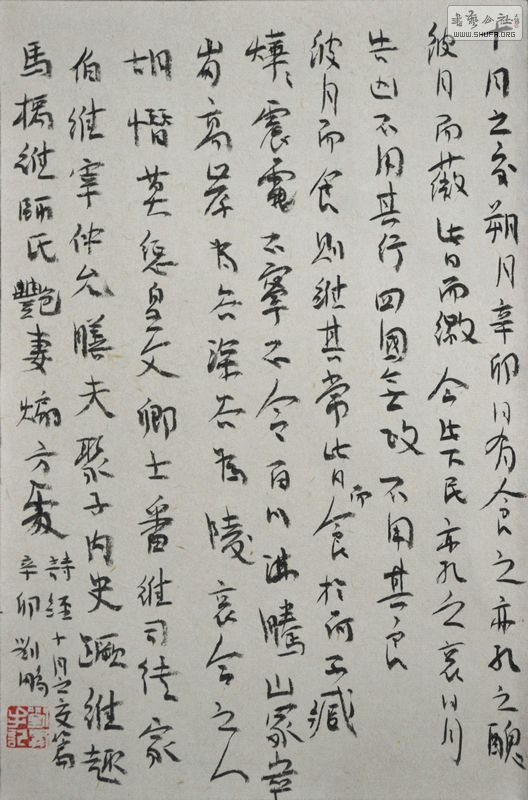 十月之交朔月辛卯日有食之亦孔之醜
彼月而薇此日而微今此下民亦孔之哀日月
告凶不用其行四國無政不用其良
彼月而食則維其常此日而食於何不臧
燁〻震電不寧不令百川沸騰山冢崒
崩高岸為谷深谷為陵哀今之人
胡憯莫懲皇父卿士番維司徒家
伯維宰仲允膳夫聚子內史蹶維趣
馬楀維師氏豔妻煽方處
詩經十月之交篇
辛卯劉鵬
書藝公社
WWW.SHUFA.ORG